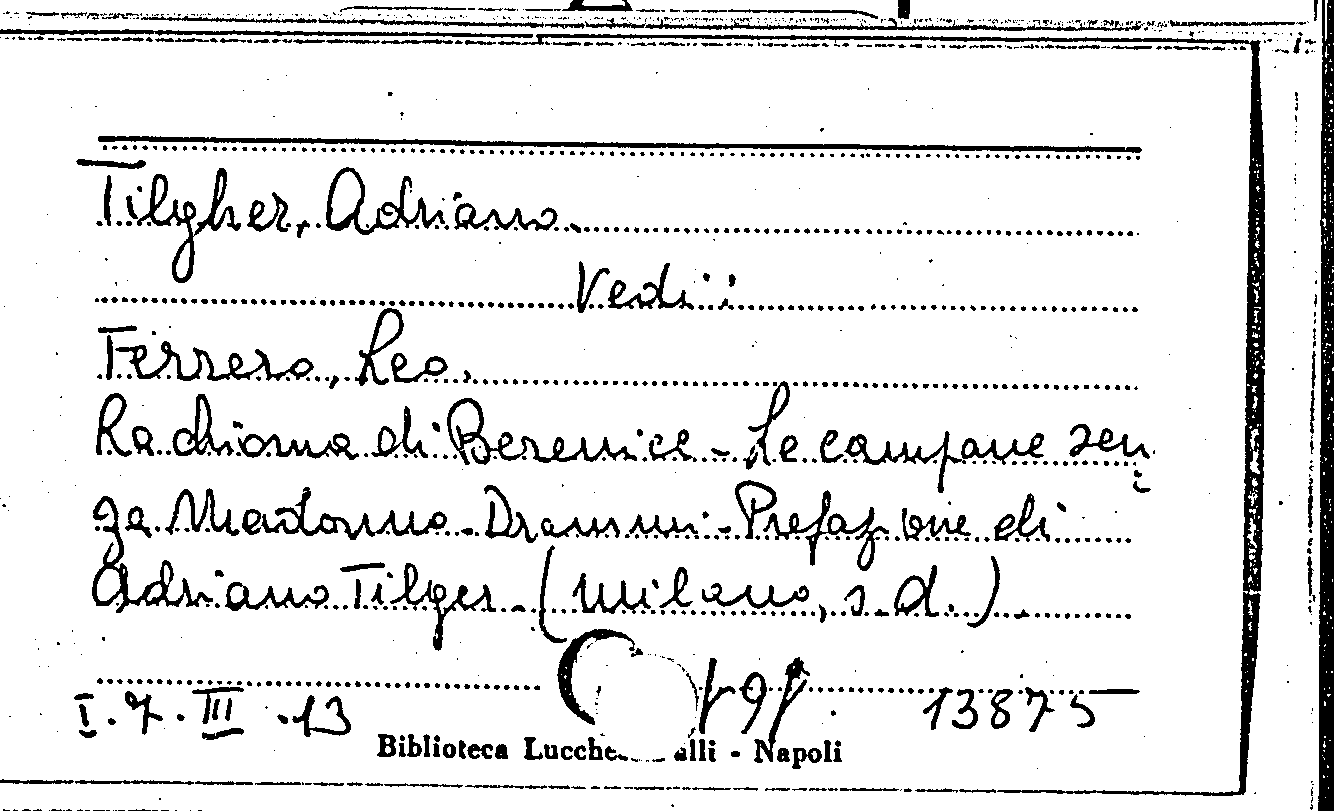 Tilgher, Adriano.
Vedi:
Ferrero, Leo.
La chioma di Berenice - Le campane sen
za Madonna - Drammi - Prefazione di
Adriano Tilger. (Milano, s.d.).
I.7.III.13 13875
Biblioteca Lucche alli - Napoli